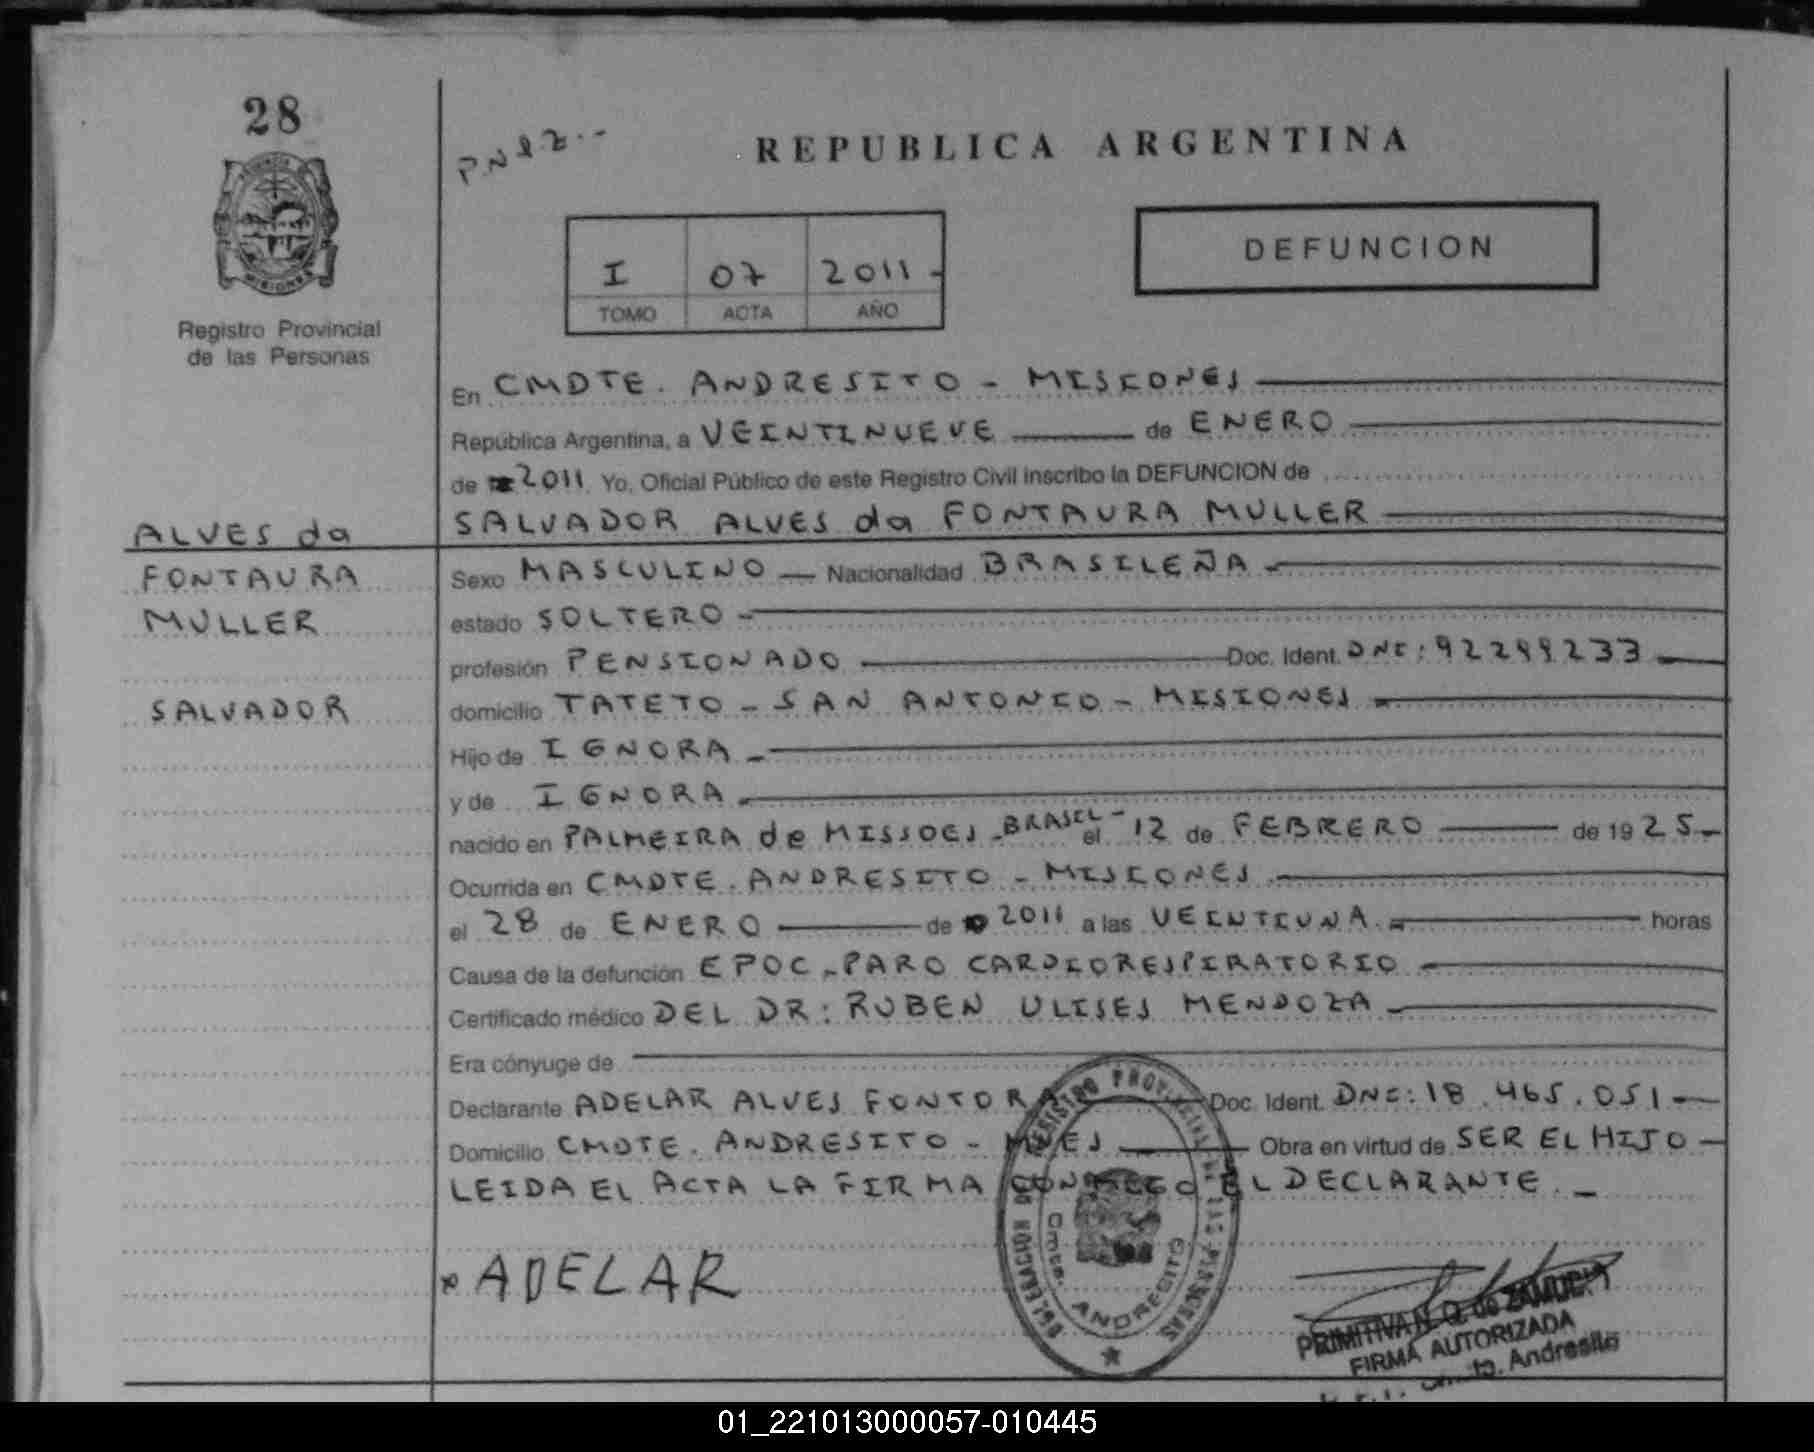 28
P.N.I.Z.--
REPUBLICA ARGENTINA
MISIONES
DEFUNCION
I 07 2011-
TOMO ACTA AÑO
Registro Provincial
de las Personas
En CMDTE. ANDRESITO - MISIONES
República Argentina, a VEINTINUEVE de ENERO
de 2011 Yo, Oficial Público de este Registro Civil inscribo la DEFUNCION de
SALVADOR ALVES da FONTAURA MULLER
ALVES da
FONTAURA
MULLER
SALVADOR
Sexo MASCULINO - Nacionalidad BRASILEÑA
estado SOLTERO -
profesión PENSIONADO Doc. Ident. DNI: 92299233
domicilio TATETO - SAN ANTONIO - MISIONES
Hijo de IGNORA -
y de IGNORA
nacido en PALMEIRA de MISSOES - BRASIL - el 12 de FEBRERO de 1925-
Ocurrida en CMDTE. ANDRESITO - MISIONES
el 28 de ENERO de 2011 a las VEINTIUNA horas
Causa de la defunción EPOC - PARO CARDIORESPIRATORIO
Certificado médico DEL DR: RUBEN ULISES MENDOZA
Era cónyuge de
Declarante ADELAR ALVES FONTORA Doc. Ident. DNI: 18.465.051-
Domicilio CMDTE. ANDRESITO - MNES Obra en virtud de SER EL HIJO -
LEIDA EL ACTA LA FIRMA CONMIGO EL DECLARANTE. -
x ADELAR
DELEGACION DEL REGISTRO PROVINCIAL DE LAS PERSONAS
Cmte. ANDRECITO
PRIMITIVA N. Q. de ZAMUDIA
FIRMA AUTORIZADA
Andresito
01_221013000057-010445